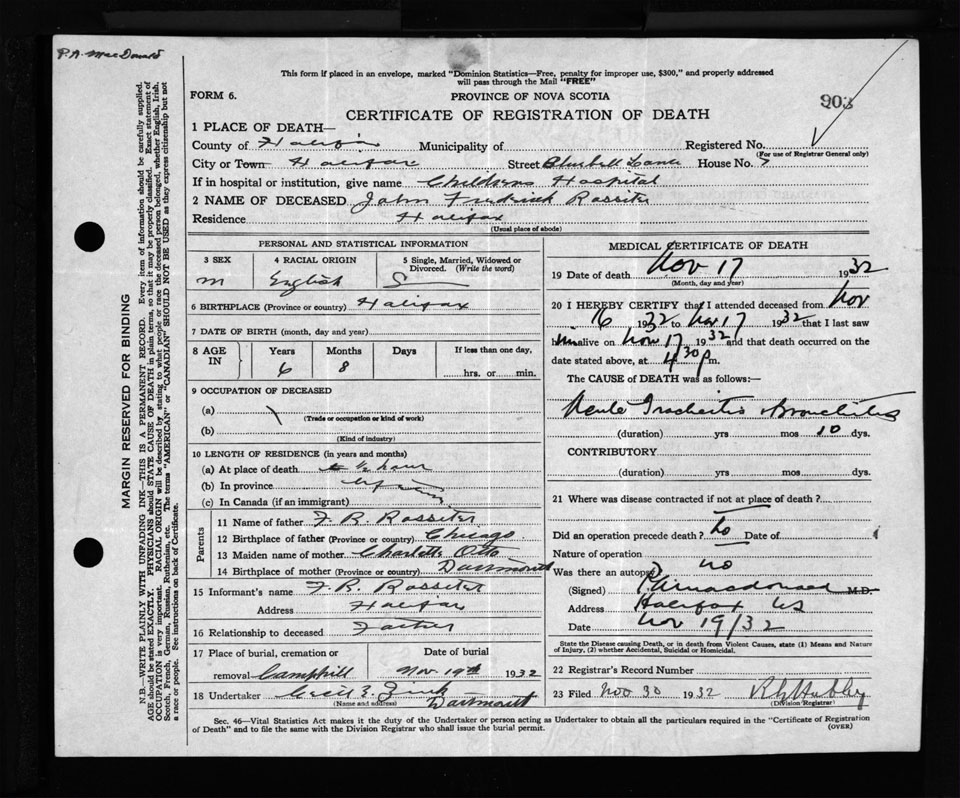 P.A. MacDonald
This form if placed in an envelope, marked "Dominion Statistics—Free, penalty for improper use, $300," and properly addressed
will pass through the Mail "FREE"
FORM 6.
PROVINCE OF NOVA SCOTIA
903
CERTIFICATE OF REGISTRATION OF DEATH
1 PLACE OF DEATH—
County of Halifax Municipality of Registered No.
(For use of Registrar General only)
City or Town Halifax Street Bluebell Lane House No.
If in hospital or institution, give name Childrens Hospital
2 NAME OF DECEASED John Fredrick Rossiter
Residence Halifax
(Usual place of abode)
PERSONAL AND STATISTICAL INFORMATION
3 SEX 4 RACIAL ORIGIN 5 Single, Married, Widowed or Divorced. (Write the word)
m English S
6 BIRTHPLACE (Province or country) Halifax
7 DATE OF BIRTH (month, day and year)
8 AGE IN Years Months Days If less than one day,
6 8 hrs. or min.
9 OCCUPATION OF DECEASED
(a)
(Trade or occupation or kind of work)
(b)
(Kind of industry)
10 LENGTH OF RESIDENCE (in years and months)
(a) At place of death ½ hour
(b) In province
(c) In Canada (if an immigrant)
Parents
11 Name of father F. R. Rossiter
12 Birthplace of father (Province or country) Chicago
13 Maiden name of mother Charlotte Otto
14 Birthplace of mother (Province or country) Dartmouth
15 Informant's name F. R. Rossiter
Address Halifax
16 Relationship to deceased Father
17 Place of burial, cremation or removal Camphill Date of burial Nov 19th 1932
18 Undertaker Cecil E. Zink
(Name and address) Dartmouth
MEDICAL CERTIFICATE OF DEATH
19 Date of death Nov 17 1932
(Month, day and year)
20 I HEREBY CERTIFY that I attended deceased from Nov
16 1932 to Nov 17 1932 that I last saw
him alive on Nov 17 1932 and that death occurred on the
date stated above, at 4 30 p m.
The CAUSE of DEATH was as follows:—
Acute Tracheitis Bronchitis
(duration) yrs mos 10 dys.
CONTRIBUTORY
(duration) yrs. mos. dys.
21 Where was disease contracted if not at place of death?
Did an operation precede death? no Date of
Nature of operation
Was there an autopsy no
(Signed) P A macdonald M.D.
Address Halifax NS
Date Nov 19/32
State the Disease causing Death, or in death from Violent Causes, state (1) Means and Nature
of Injury, (2) whether Accidental, Suicidal or Homicidal.
22 Registrar's Record Number
23 Filed Nov 30 1932
(Division Registrar)
Sec. 46—Vital Statistics Act makes it the duty of the Undertaker or person acting as Undertaker to obtain all the particulars required in the "Certificate of Registration
of Death" and to file the same with the Division Registrar who shall issue the burial permit.
(OVER)
MARGIN RESERVED FOR BINDING
N.B.—WRITE PLAINLY WITH UNFADING INK—THIS IS A PERMANENT RECORD. Every item of information should be carefully supplied.
AGE should be stated EXACTLY. PHYSICIANS should STATE CAUSE OF DEATH in plain terms, so that it may be properly classified. Exact statement of
OCCUPATION is very important. RACIAL ORIGIN will be described by stating to what people or race the deceased person belonged, whether English, Irish,
Scotch, French, German, Russian, Ruthenian, etc. The terms "AMERICAN" or "CANADIAN" SHOULD NOT BE USED as they express citizenship but not
a race or people. See instructions on back of Certificate.